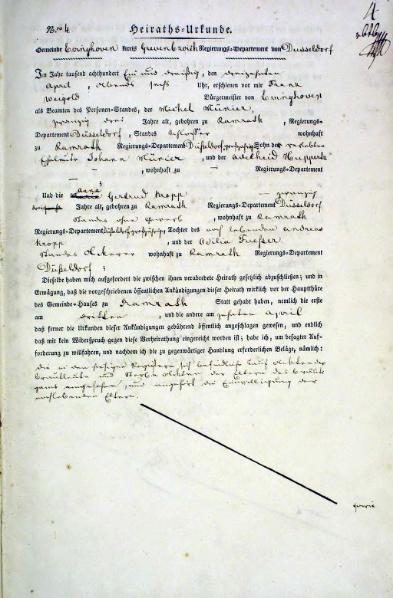 Nro. 4 Heiraths-Urkunde. 4
Gemeinde Evinghoven Kreis Grevenbroich Regierungs-Departement von Düsseldorf
Im Jahr tausend achthundert Ein und dreißig, den
April, Abends sechs Uhr, erschienen vor mir Franz
Weipold Bürgermeister von Evinghoven
als Beamten des Personen-Standes, der Michel Münier,
zwanzig drei Jahre alt, gebohren zu Ramrath, Regierungs-
Departement Düsseldorf, Standes wohnhaft
zu Ramrath Regierungs-Departement Düsseldorf, Sohn des
Johann Münier, und der Adelheid Huppertz
—, wohnhaft zu — Regierungs-Departement
Und die Gertrud Kropp zwanzig
Jahre alt, gebohren zu Ramrath Regierungs-Departement Düsseldorf
Standes ohne Gewerb, wohnhaft zu Ramrath
Regierungs-Departement Düsseldorf, Tochter des noch lebenden Andreas
Kropp, und der Odilia
Standes Ackerer wohnhaft zu Ramrath Regierungs-Departement
Düsseldorf:
Dieselbe haben mich aufgefordert die zwischen ihnen verabredete Heirath gesetzlich abzuschließen; und in
Erwägung, daß die vorgeschriebenen öffentlichen Ankündigungen dieser Heirath wirklich vor der Hauptthüre
des Gemeinde-Hauses zu Ramrath Statt gehabt haben, nemlich die erste
am dritten, und die andere am zehnten April
daß ferner die Urkunden dieser Ankündigungen gebührend öffentlich angeschlagen gewesen, und endlich
daß mir kein Widerspruch gegen diese Verheirathung eingereicht worden ist; habe ich, um besagter Auf-
forderung zu willfahren, und nachdem ich die zu gegenwärtiger Handlung erforderlichen Beläge, nämlich:
die in den hiesigen Registern sich befindliche Tauf Akten der
Brautleute und Sterbe Akten der Eltern des Bräuti-
gams eingesehen, und angehört die Einwilligung der
Eltern.
sowie